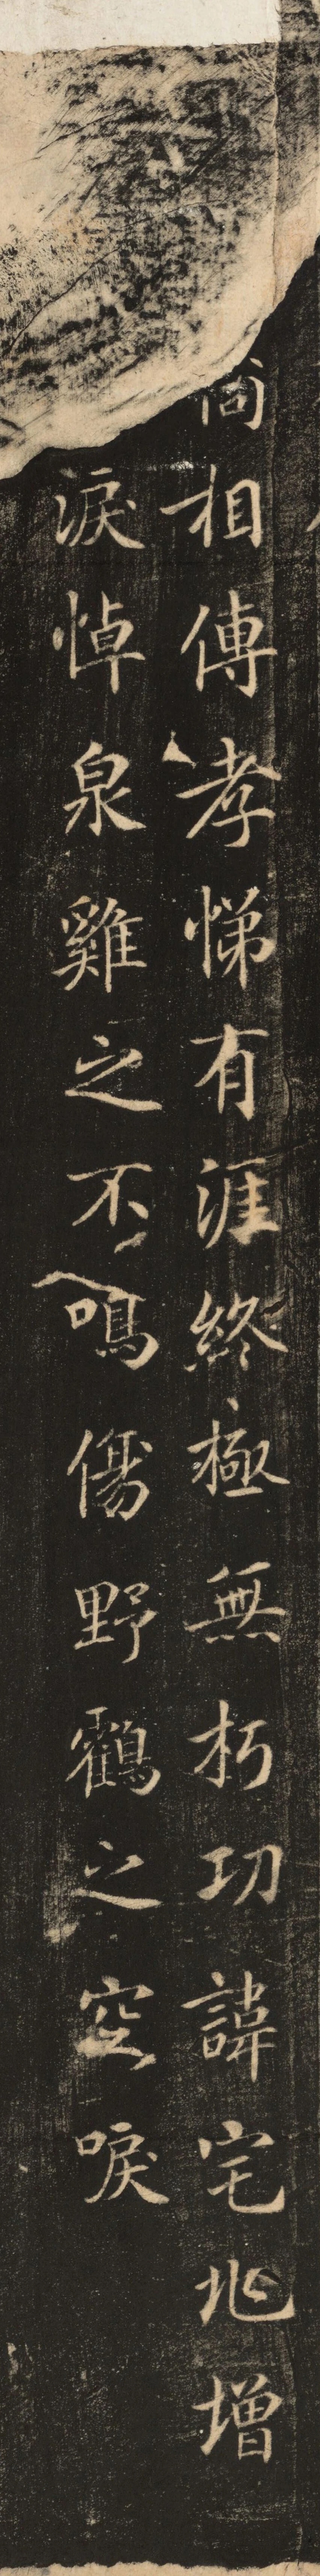 相傳孝悌有涯終極無朽功諱宅兆增
淚悼泉雞之不鳴傷野鶴之空唳